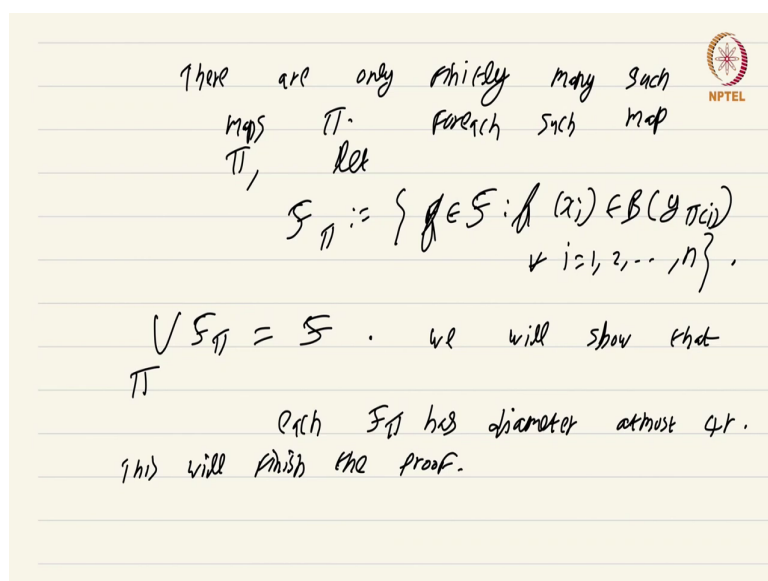 There are only finitely many such
NPTEL
maps π. For each such map
π, let
𝓕_π := { f ∈ 𝓕 : f (x_i) ∈ B(y_π(i))
∀ i=1, 2, .. , n} .
⋃ 𝓕_π = 𝓕 . we will show that
π
each 𝓕_π has diameter atmost 4r.
This will finish the proof.